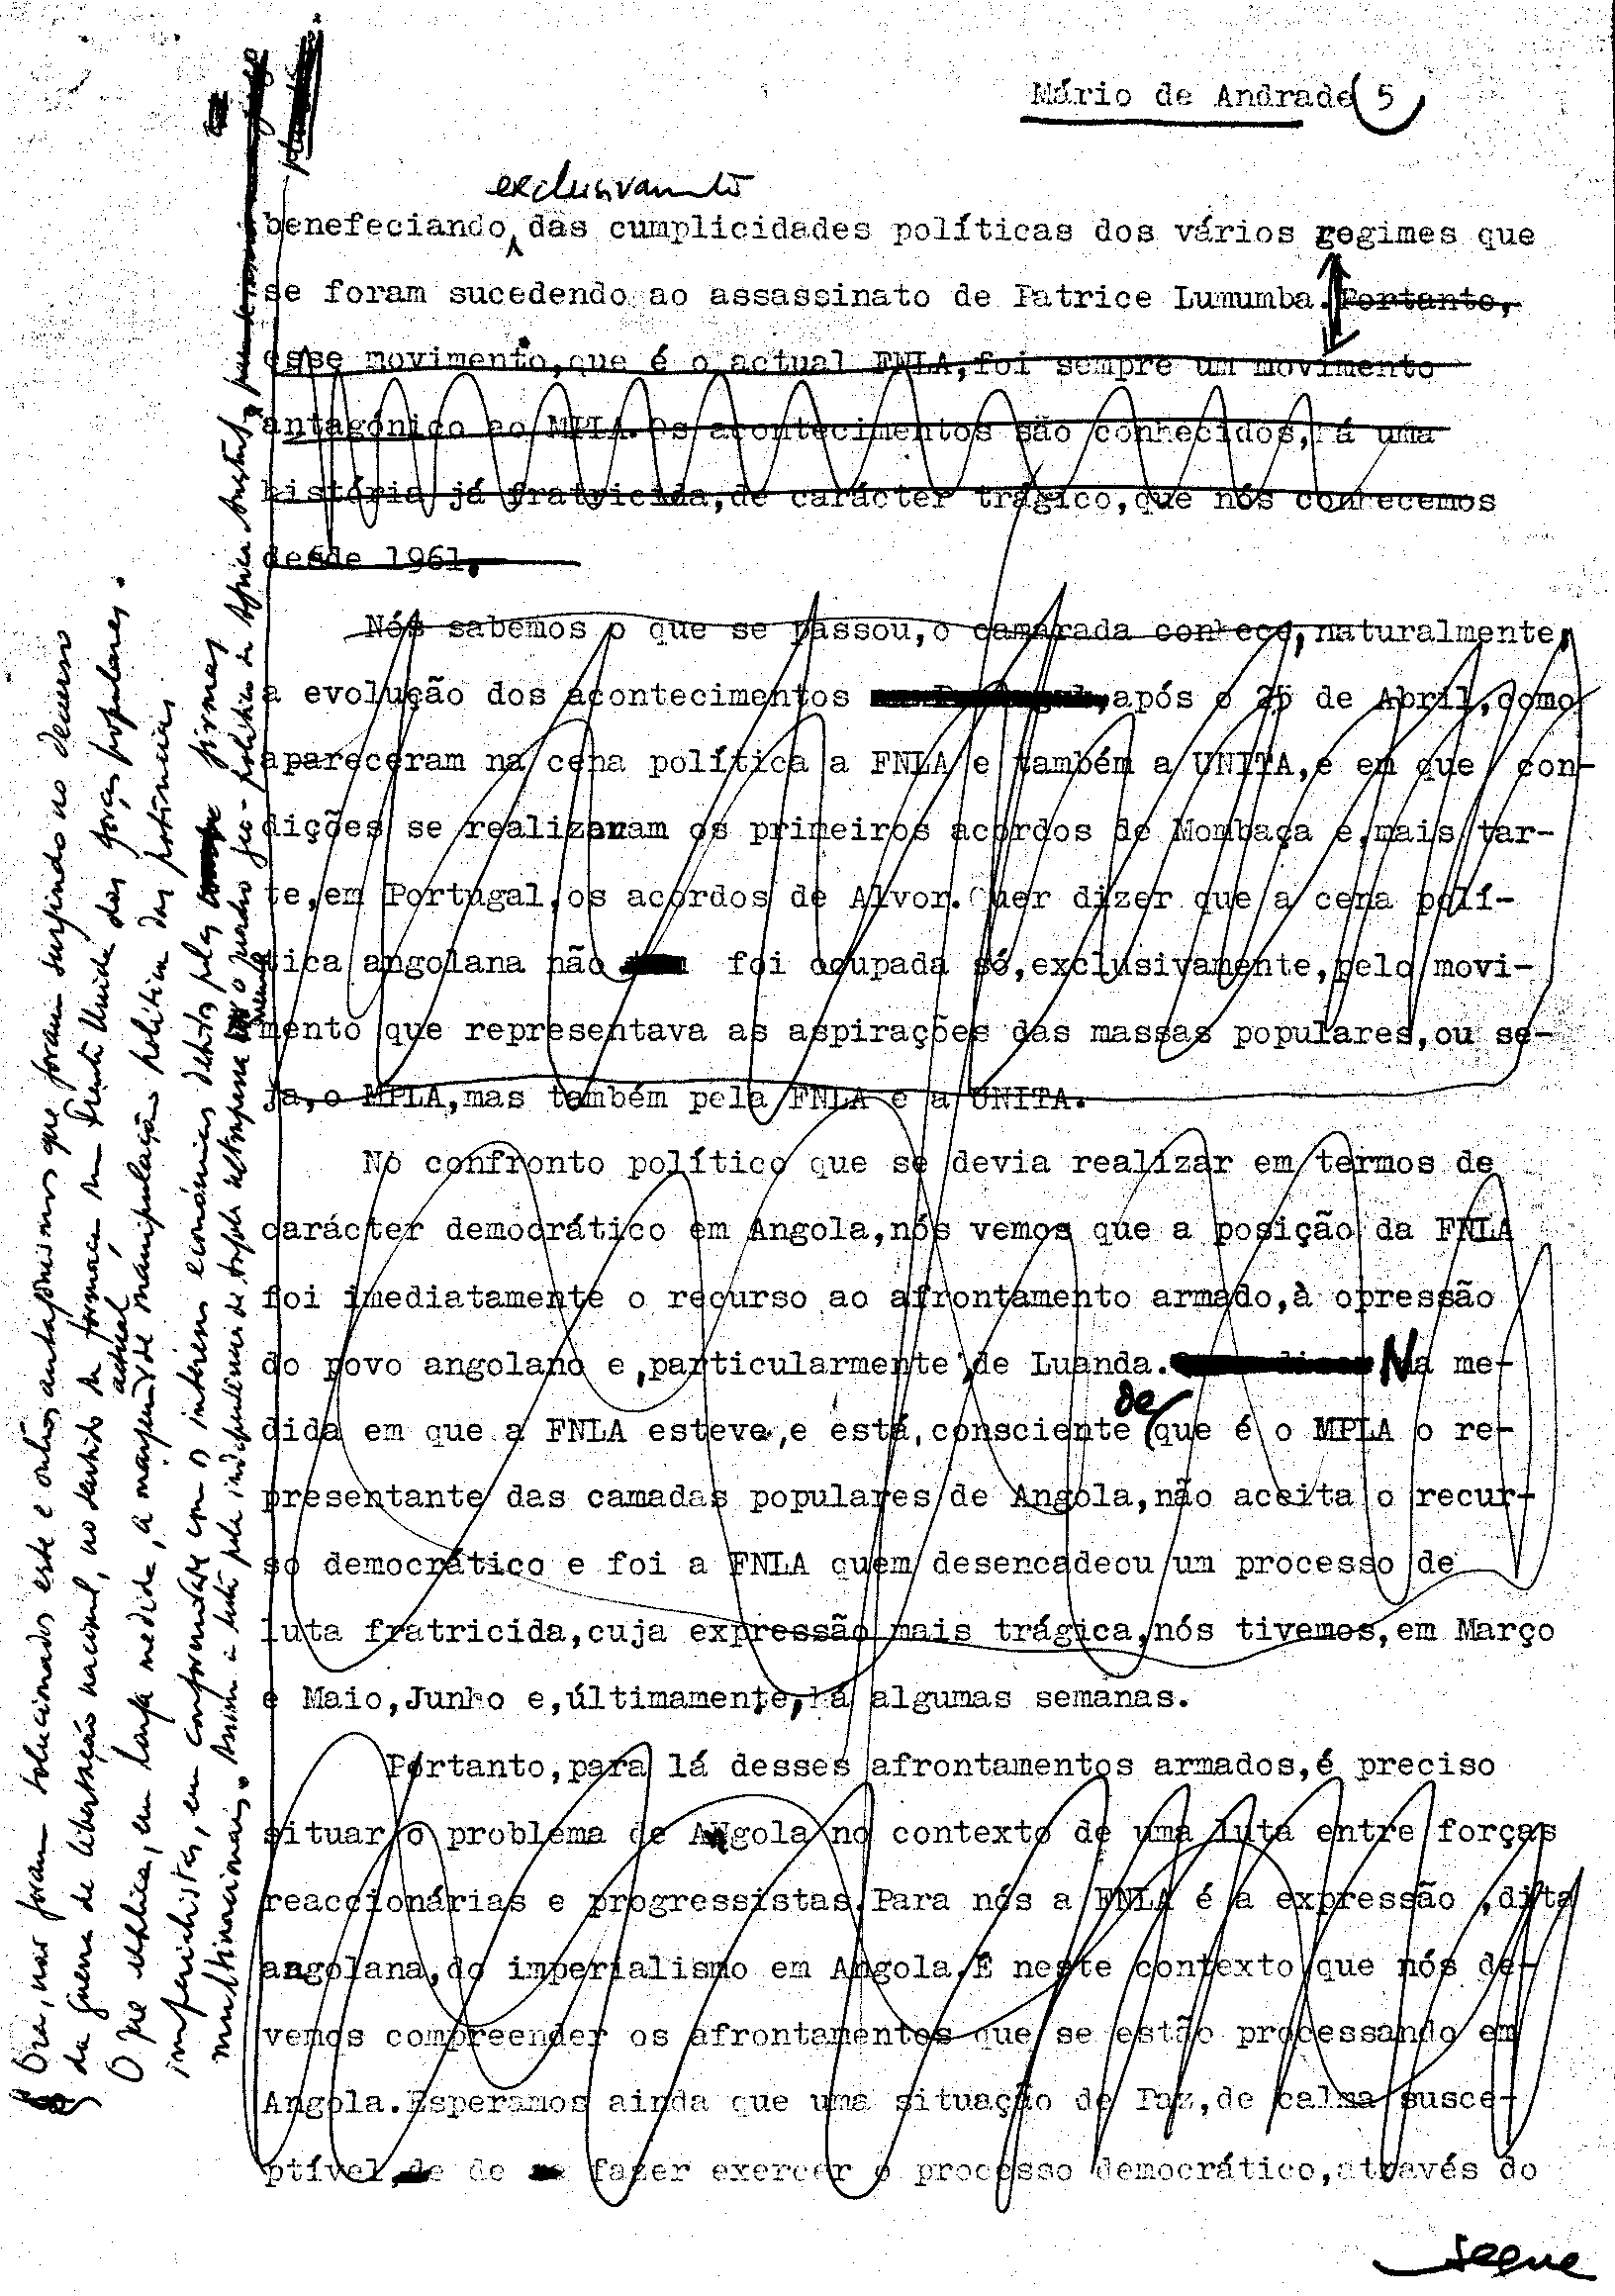 Mário de Andrade 5
exclusivamente
benefeciando das cumplicidades políticas dos vários regimes que
se foram sucedendo ao assassinato de Patrice Lumumba. Portanto,
esse movimento,que é o actual FNLA,foi sempre um movimento
antagónico ao MPLA.Os acontecimentos são conhecidos,há uma
história já fratricida,de carácter trágico,que nós conhecemos
desde 1961,
Nós sabemos o que se passou,o camarada conhece,naturalmente,
a evolução dos acontecimentos ,após o 25 de Abril,como
apareceram na cena política a FNLA e também a UNITA,e em que con-
dições se realizaram os primeiros acordos de Mombaça e,mais tar-
te,em Portugal,os acordos de Alvor.Quer dizer que a cena polí-
tica angolana não foi ocupada só,exclusivamente,pelo movi-
mento que representava as aspirações das massas populares,ou se-
ja,o MPLA,mas também pela FNLA e a UNITA.
No confronto político que se devia realizar em termos de
carácter democrático em Angola,nós vemos que a posição da FNLA
foi imediatamente o recurso ao afrontamento armado,à opressão
do povo angolano e,particularmente,de Luanda. Na me-
de
dida em que a FNLA esteve,e está,consciente que é o MPLA o re-
presentante das camadas populares de Angola,não aceita o recur-
so democrático e foi a FNLA quem desencadeou um processo de
luta fratricida,cuja expressão mais trágica,nós tivemos,em Março
e Maio,Junho e,últimamente,há algumas semanas.
Portanto,para lá desses afrontamentos armados,é preciso
situar o problema de Angola no contexto de uma luta entre forças
reaccionárias e progressistas.Para nós a FNLA é a expressão ,dita
angolana,do imperialismo em Angola.É neste contexto que nós de-
vemos compreender os afrontamentos que se estão processando em
Angola.Esperamos ainda que uma situação de Paz,de calma susce-
ptível,de de fazer exercer o processo democrático,através do
segue
Ora, não foram solucionados este e outros antagonismos que foram surgindo no decurso
da guerra de libertação nacional, no sentido de formar um Frente Unida das forças populares.
O que explica, em larga medida, a margem de manipulação política das potências
actual
imperialistas, em conformidade com os interesses económicos detidos pelas firmas
multinacionais. Assim a luta pela independência de Angola ultrapassa o quadro geo-político da África Austral,